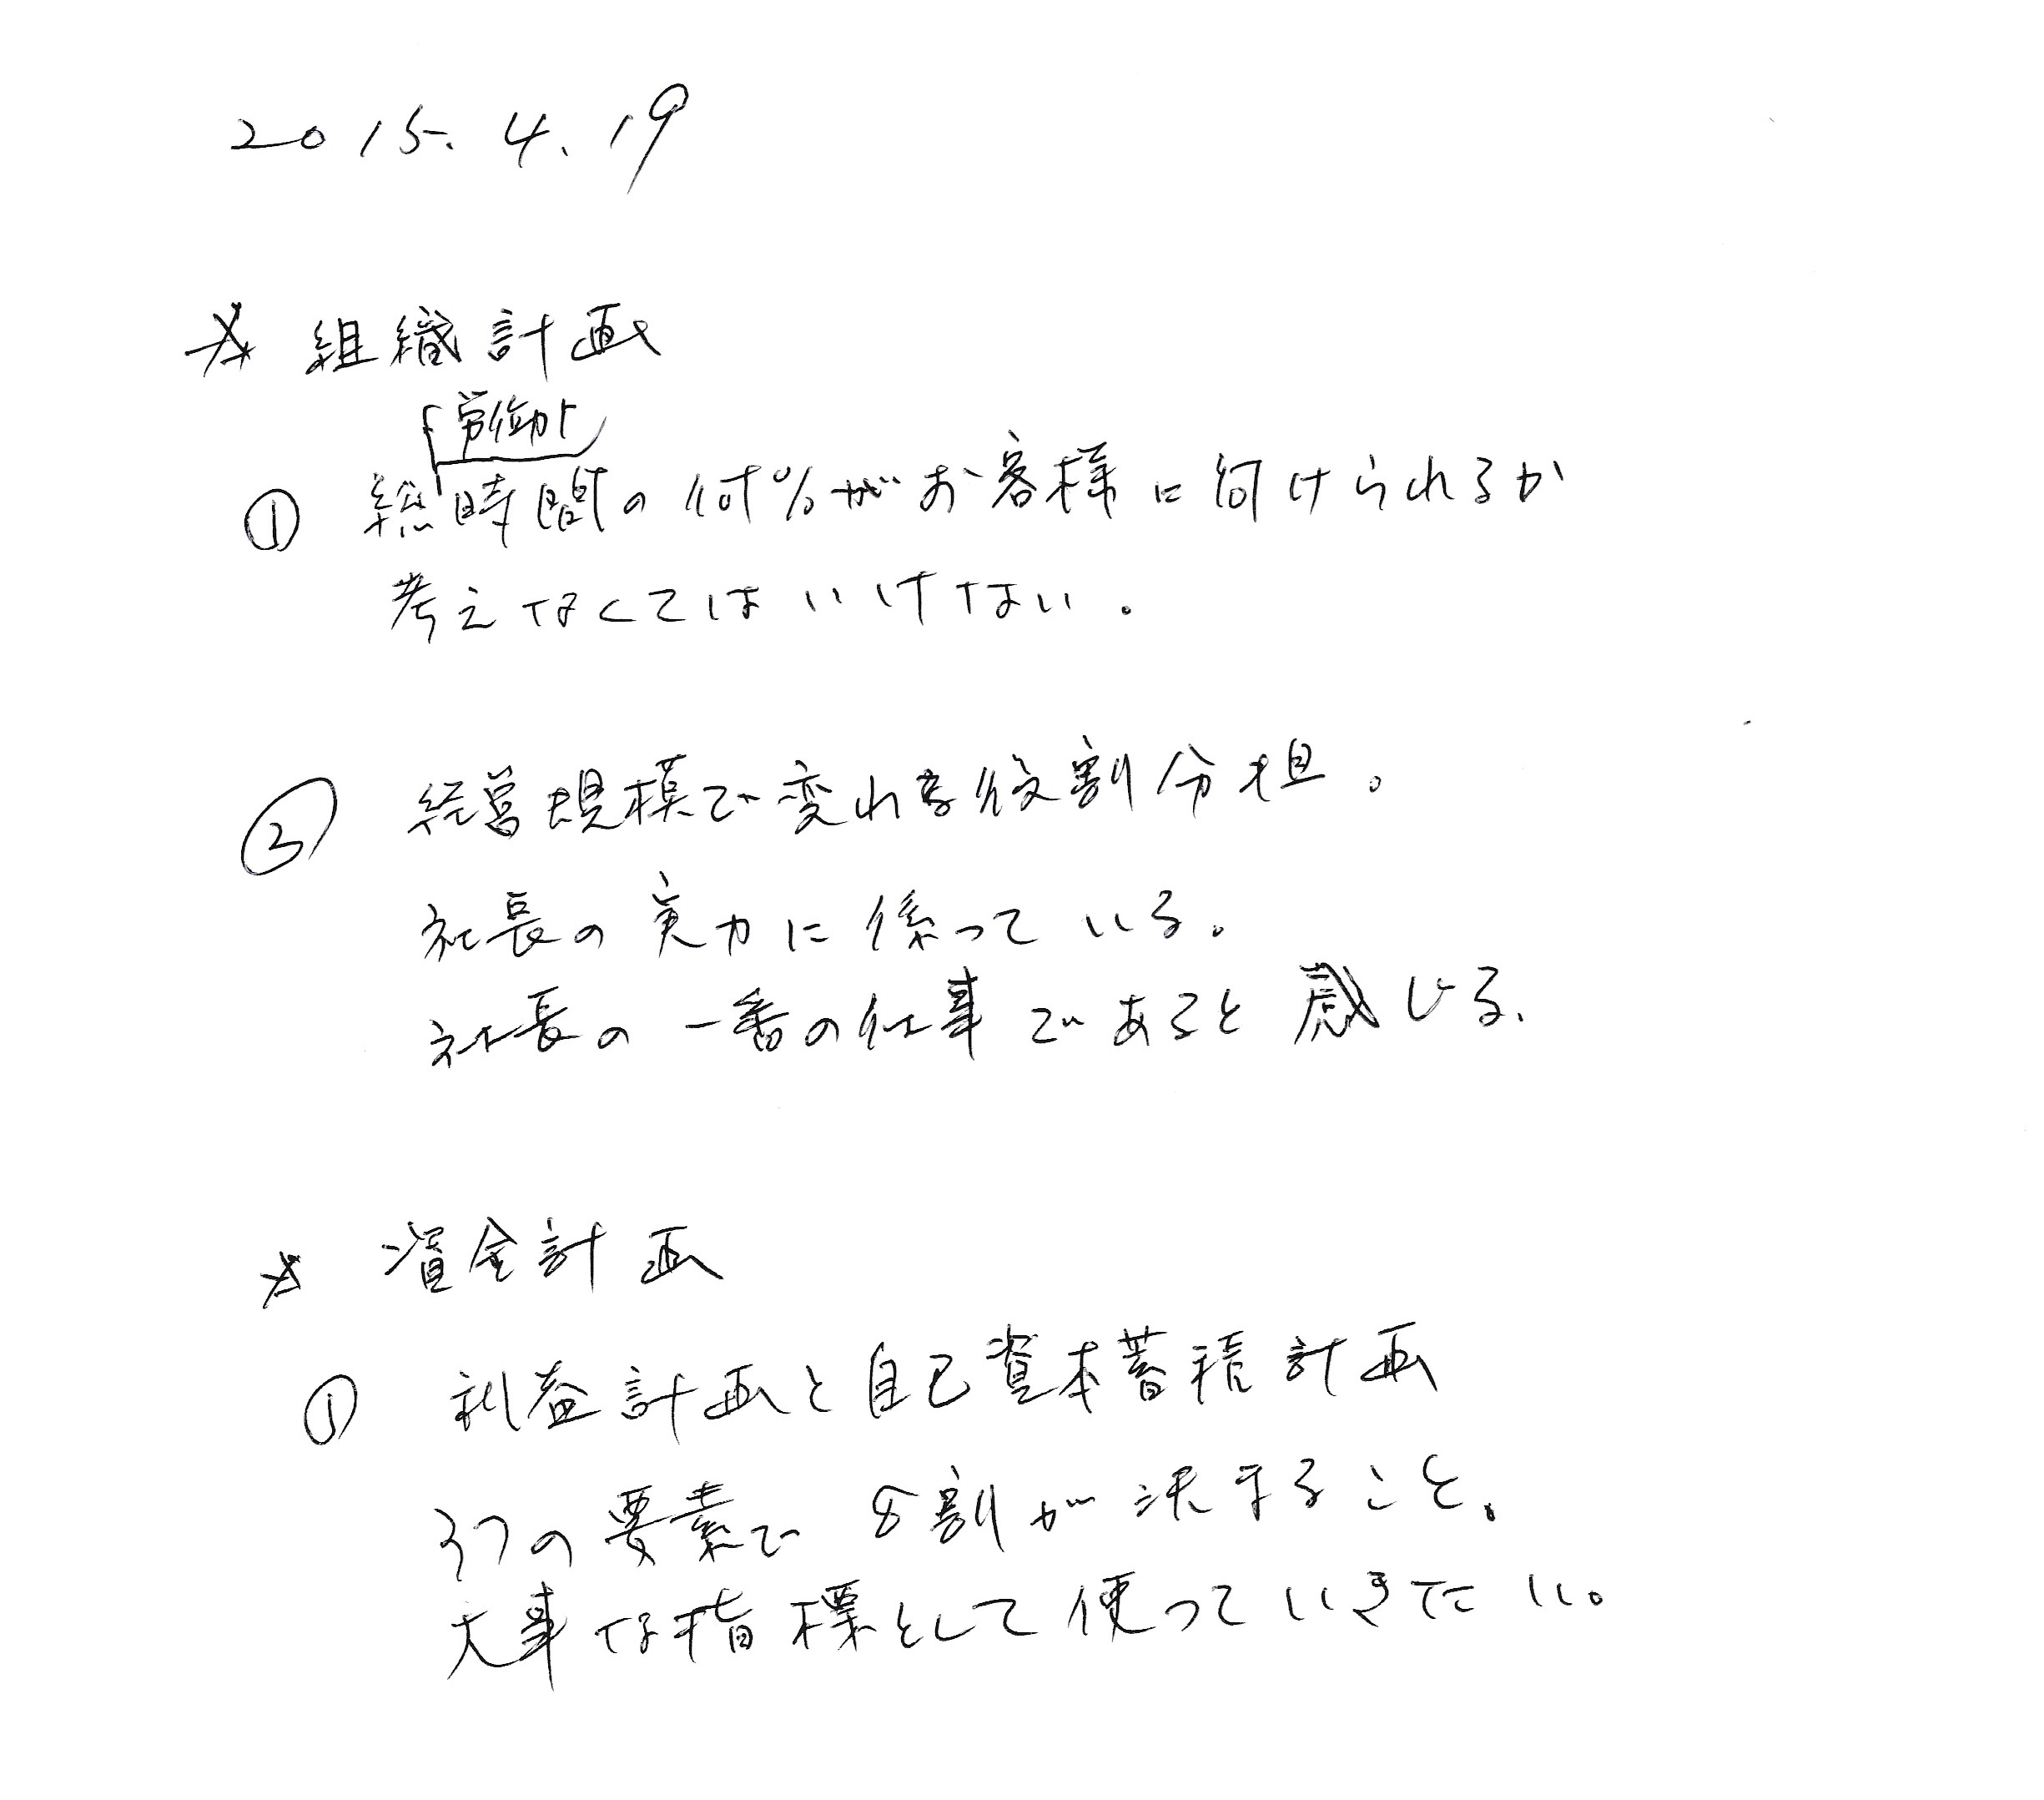 2015.4.19
☆ 組織計画
労働
① 総時間の何%がお客様に向けられるか
考えなくてはいけない。
② 経営規模で変れる役割分担。
社長の実力に係っている。
社長の一番の仕事であると感じる、
☆ 資金計画
① 利益計画と自己資本蓄積計画
3つの要素で8割が決まること。
大事な指標として使っていきたい。